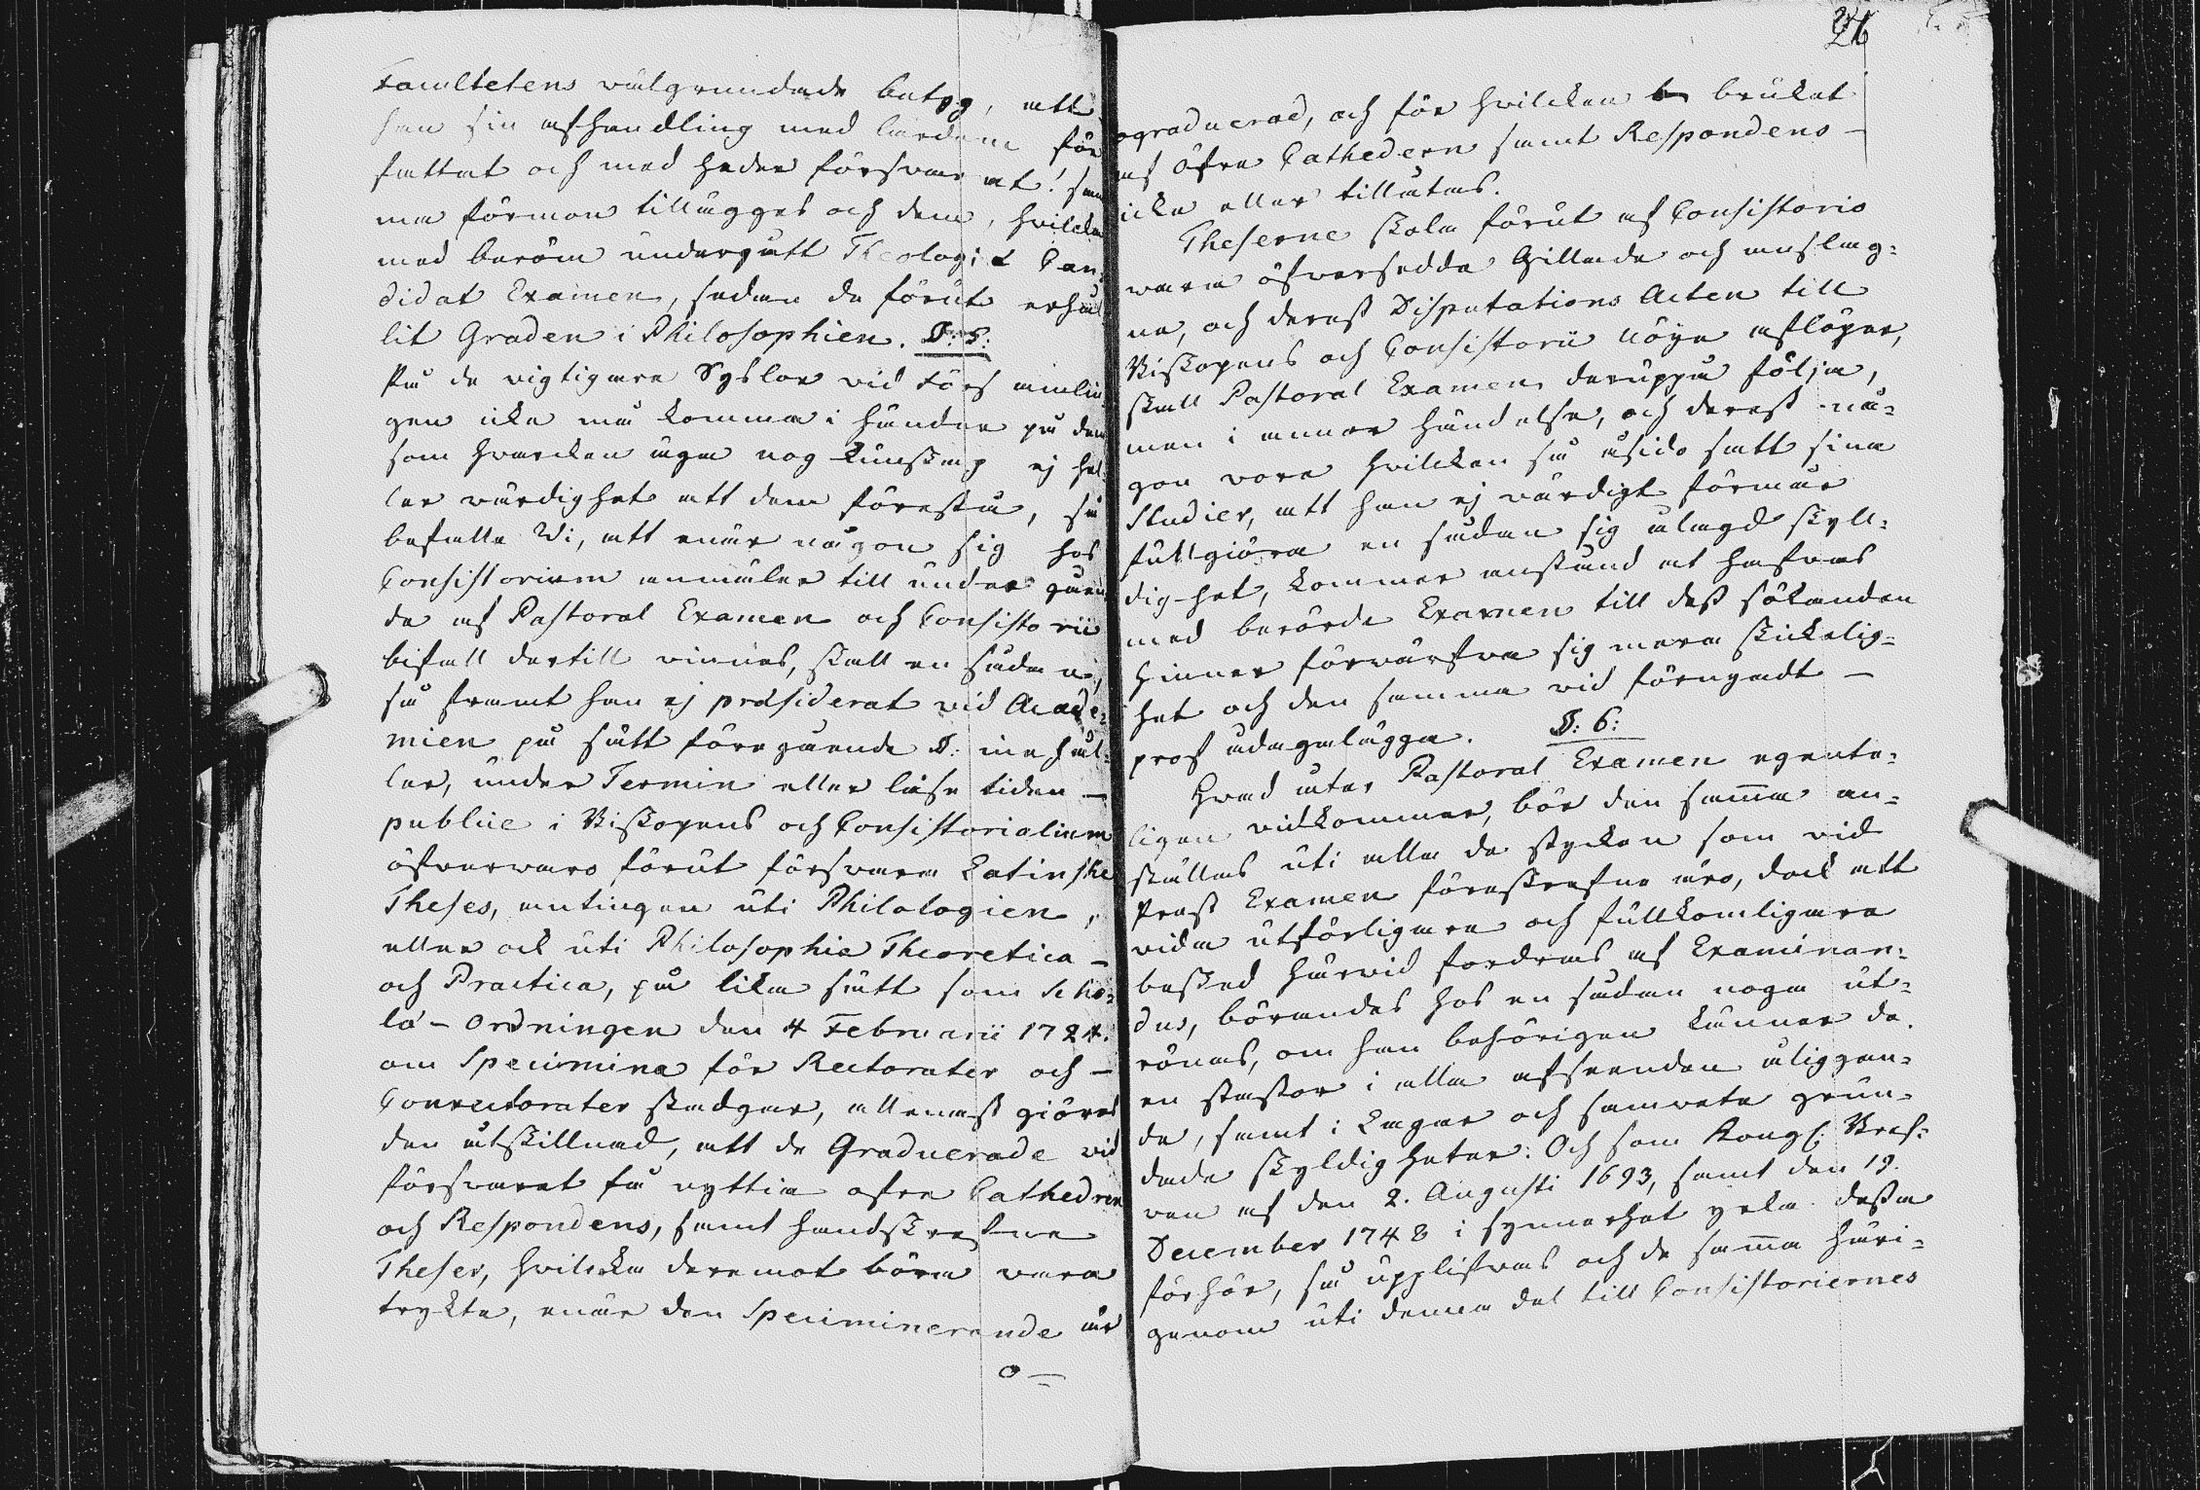 Facultetens wälgrundade betyg, att
han sin afhandling med lärdom för
fattat och med heder försvarat: sam
ma förmon tillägges och dem, hvilcka
med beröm undergått Theologiæ Can¬
didat Examen, sedan de förut erhål
lit Graden i Philosophien. §: 5:
På de wigtigare Syslor vid Församlin
gen icke må komma i händer på den
som hvarcken äga nog kunskap ej hel¬
ler wärdighet att dem förestå, så
befalle Wi, att enär någon sig hos
Consistorium anmäler till undergåen
de af Pastoral Examen och Consistorii
bifall dertill vinnes, skall en sådan,
så framt han ej præsiderat vid Acade¬
mien på sätt föregående §: inehål¬
ler, under Termin eller läse tiden —
publice i Biskopens och Consistorialium
öfvervaro förut försvara Latinske
Theses, antingen uti Philologien,
eller ock uti Philosophia Theoretica —
och Practica, på lika sätt som Scho¬
læ-Ordningen den 4 Februarii 1724.
om Specimina för Rectorater och —
Conrectorater stadgar, allenast giöres
den åtskillnad, att de Graduerade vid
försvaret få nyttia öfra Cathedren
och Respondens, samt handskrefne
Theser, hvilcka deremot böra vara
tryckta, enär den Speciminerande är
o—
24
ograduerad, och för hvilcken bruket
af öfra Cathedern samt Respondens —
icke eller tillåtas.
Theserne skola förut af Consistorio
wara öfversedda Gillade och anslag¬
ne, och derest Disputations Acten till
Biskopens och Consistorii nöye aflöper,
skall Pastoral Examen deruppå följa,
men i annor händelse, och derest nå¬
gon vore hvilcken så åsido satt sina
Studier, att han ej värdigt förmår
fullgiöra en sådan sig ålagd skyl¬
dig-het, kommer anstånd at hafvas
med berörde Examen till dess sökanden
hinner förwärfva sig mera skickelig¬
het och den samma vid förnyadt —
prof ådagalägga. §: 6:
Hvad åter Pastoral Examen egente¬
ligen vidkommer, bör den samma an¬
ställas uti alla de stycken som vid
Prest Examen föreskrefne äro, dock att
vida utförligare och fullkomligare
besked härvid fordras af Examinan¬
dus, börandes hos en sådan noga ut¬
rönas, om han behörigen känner de
en Pastor i alla afseenden åliggan¬
de, samt i Lagar och samvete grun¬
dade skyldigheter: Och som Kongl: Bref¬
ven af den 2. Augusti 1693, samt den 19.
December 1748 i synnerhet yrka dessa
förhör, så upplifvas och de samma häri¬
genom uti denna del till Consistoriernes